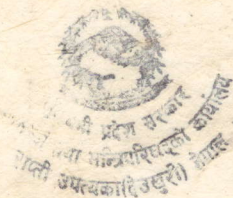 प्रदेश सरकार
तथा मन्त्रिपरिषद्को कार्यालय
राप्ती उपत्यका(देउखुरी) नेपाल